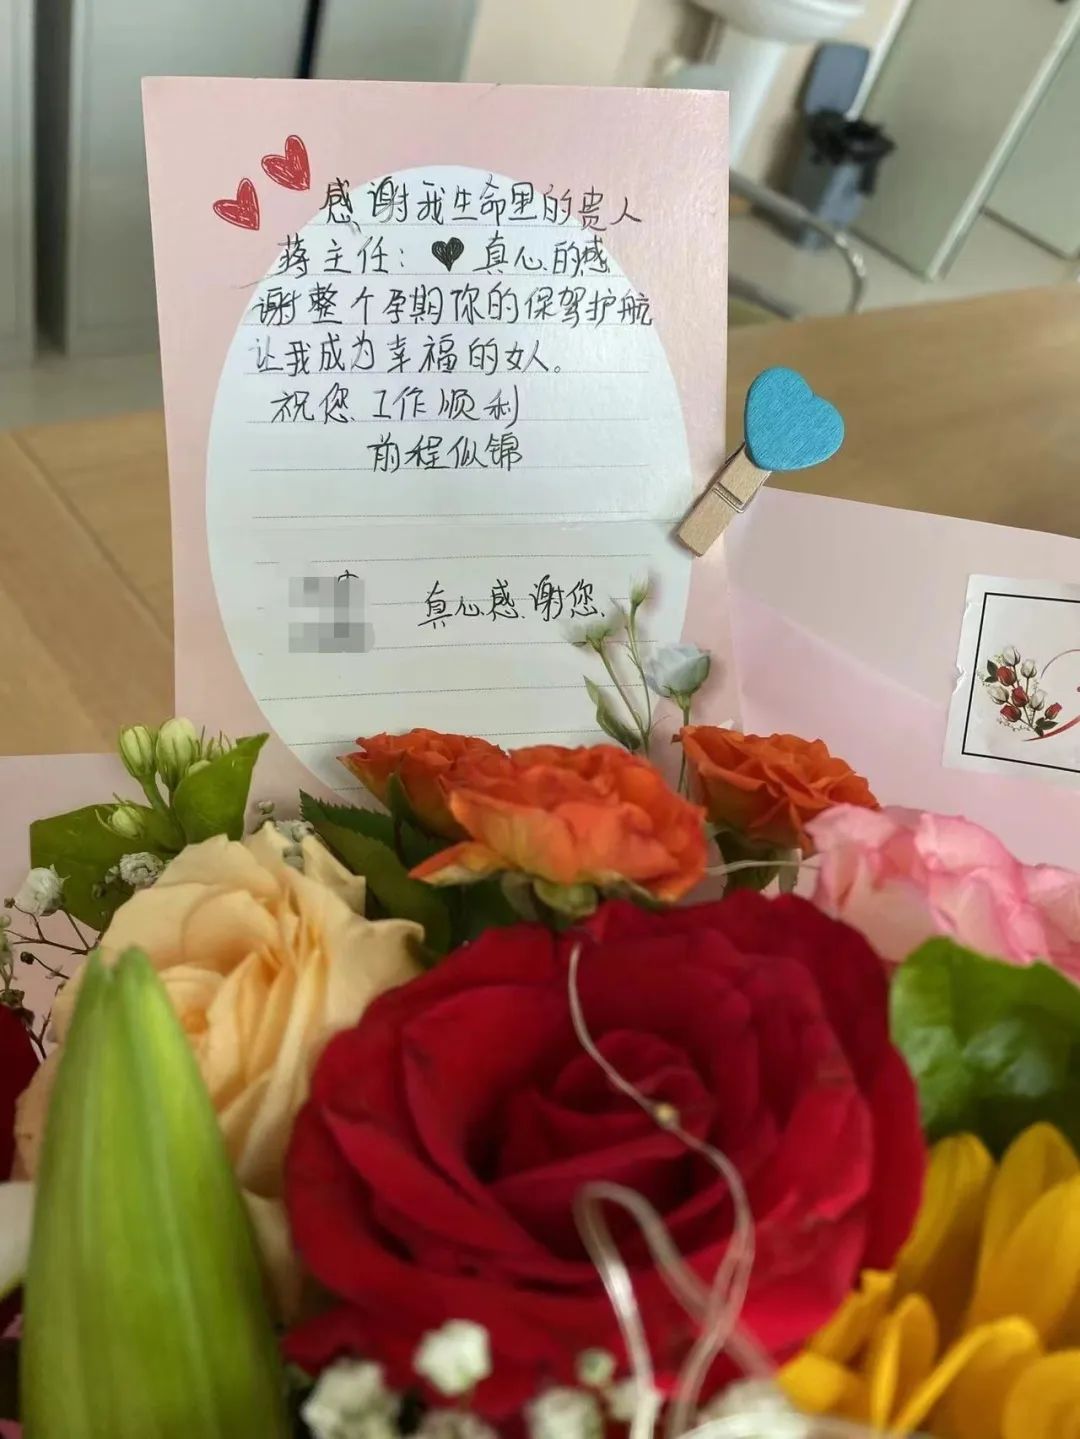 感谢我生命里的贵人
蒋主任：♥真心的感
谢整个孕期你的保驾护航
让我成为幸福的女人。
祝您工作顺利
前程似锦
真心感谢您